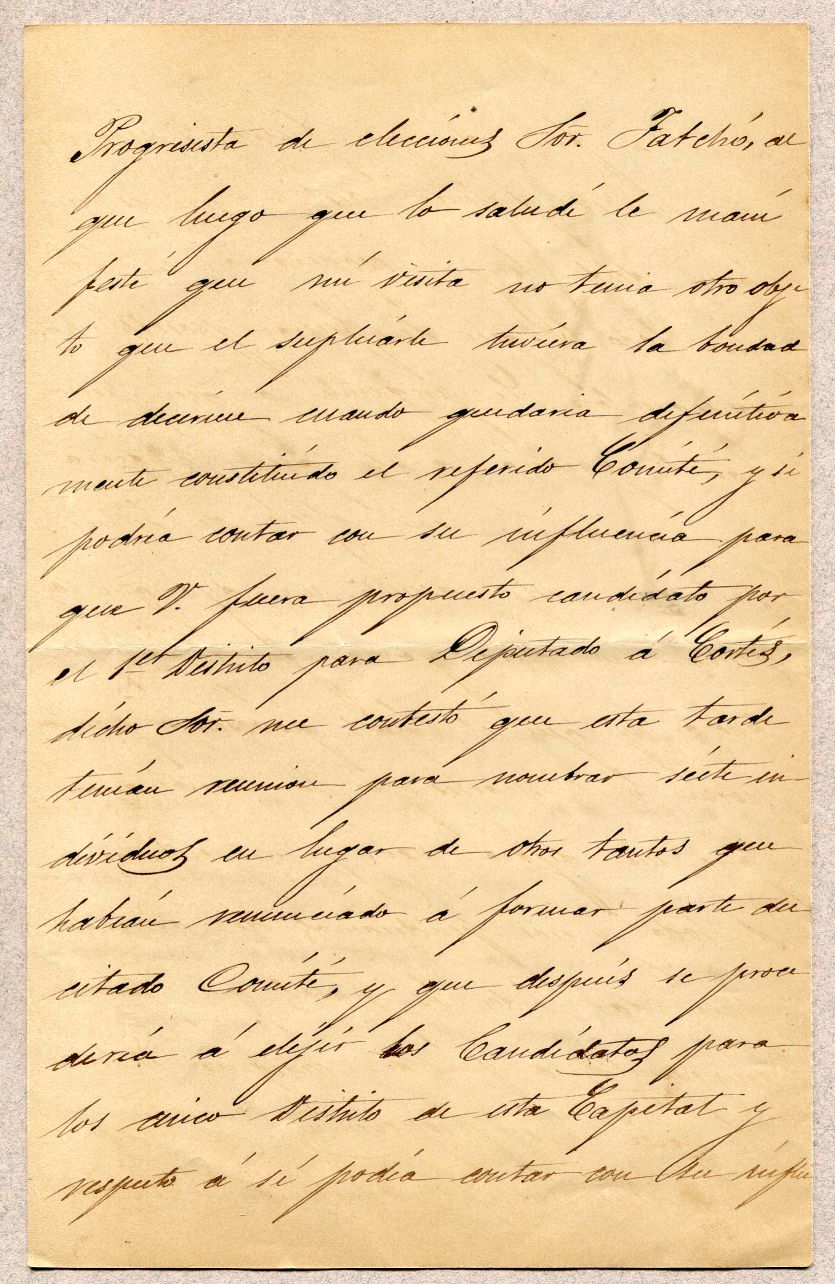 Progresista de elecciónes Sor. Fatchó, al
que luego que lo saludé le mani
festé que mi visita no tenia otro obje
to que el suplicárle tuviéra la bondad
de decirme cuando quedaria definitiva
mente constituído el referido Comíté, y si
podría contar con su influencia para
que V. fuera propuesto candidato por
el 1er Distrito para Diputado á Cortés,
dícho Sor. me contestó que esta tarde
tenían reunion para nombrar siete in-
dividuos en lugar de otros tantos que
habían renunciado á formar parte del
citado Comíté, y que despues se proce
dería á elejir los Candidatos para
los cinco Distrito de esta Capital y
respecto á sí podía contar con su influ